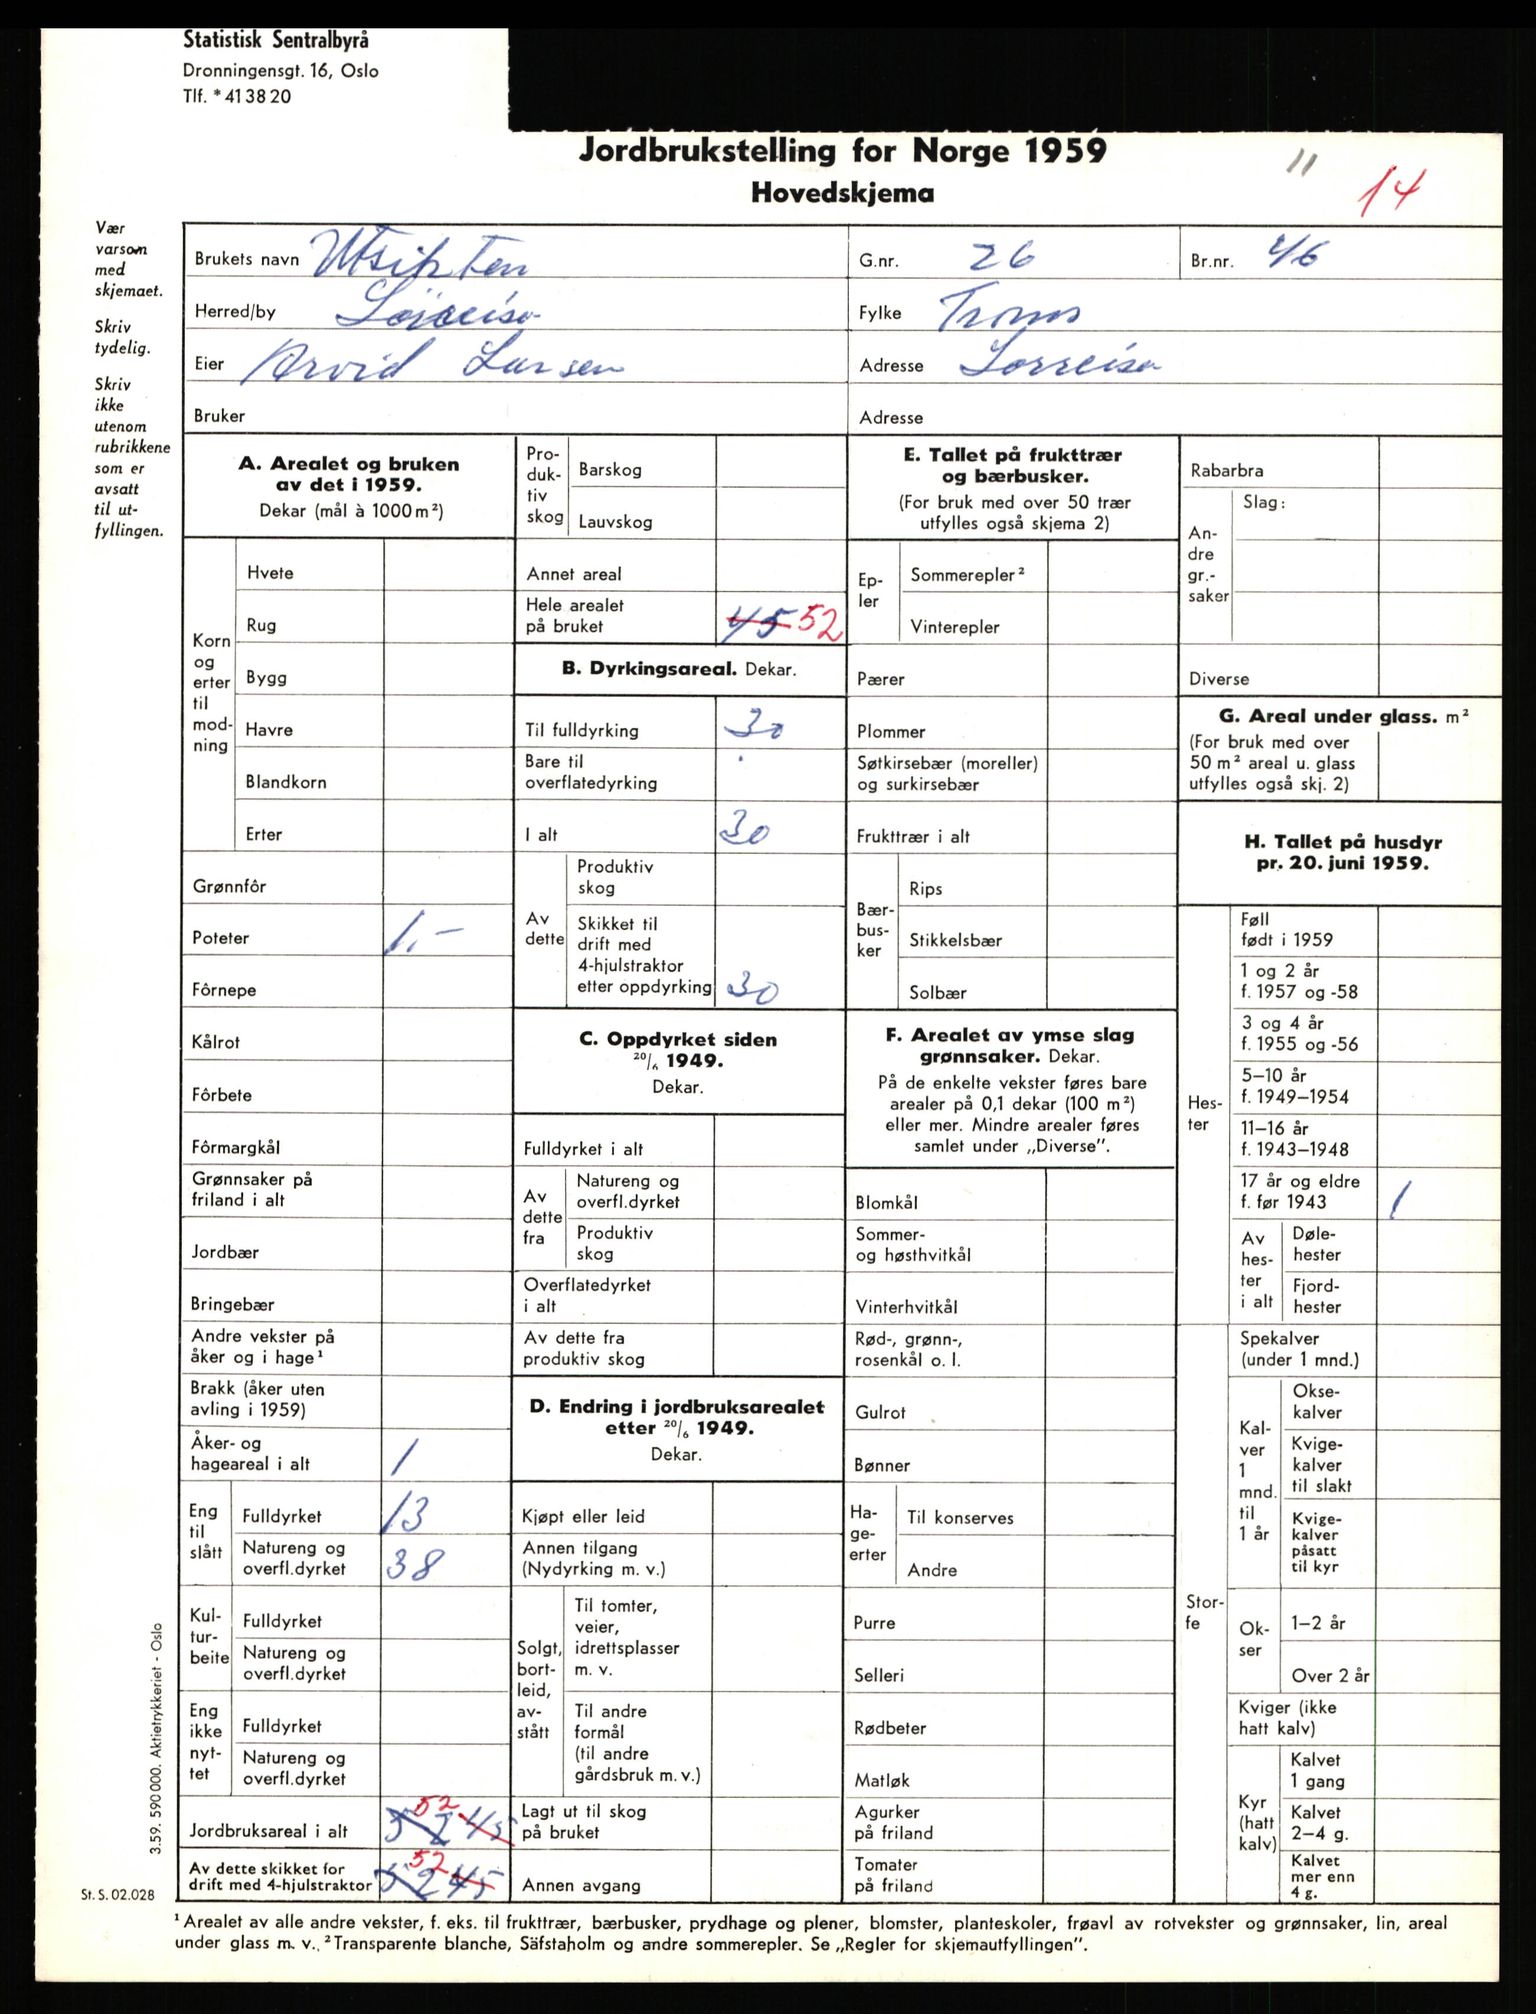 Statistisk Sentralbyrå
Dronningensgt. 16, Oslo
Tlf. * 41 38 20
Jordbrukstelling for Norge 1959
Hovedskjema
11
14
Vær
varsom
med
skjemaet.
Skriv
tydelig.
Skriv
ikke
utenom
rubrikkene
som er
avsatt
til ut-
fyllingen.
Brukets navn Utsikten
G.nr. 26
Br.nr. 46
Herred/by Sørreisa
Fylke Troms
Eier Arvid Larsen
Adresse Sørreisa
Bruker
Adresse
A. Arealet og bruken
av det i 1959.
Dekar (mål à 1000 m²)
Korn
og
erter
til
mod-
ning
Hvete
Rug
Bygg
Havre
Blandkorn
Erter
Grønnfôr
Poteter 1.-
Fôrnepe
Kålrot
Fôrbete
Fôrmargkål
Grønnsaker på
friland i alt
Jordbær
Bringebær
Andre vekster på
åker og i hage¹
Brakk (åker uten
avling i 1959)
Åker- og
hageareal i alt 1
Eng
til
slått
Fulldyrket 13
Natureng og
overfl.dyrket 38
Kul-
tur-
beite
Fulldyrket
Natureng og
overfl.dyrket
Eng
ikke
nyt-
tet
Fulldyrket
Natureng og
overfl.dyrket
Jordbruksareal i alt 52 52 45
Av dette skikket for
drift med 4-hjulstraktor 52 52 45
Pro-
duk-
tiv
skog
Barskog
Lauvskog
Annet areal
Hele arealet
på bruket 45 52
B. Dyrkingsareal. Dekar.
Til fulldyrking 30
Bare til
overflatedyrking
I alt 30
Av
dette
Produktiv
skog
Skikket til
drift med
4-hjulstraktor
etter oppdyrking 30
C. Oppdyrket siden
20/6 1949.
Dekar.
Fulldyrket i alt
Av
dette
fra
Natureng og
overfl.dyrket
Produktiv
skog
Overflatedyrket
i alt
Av dette fra
produktiv skog
D. Endring i jordbruksarealet
etter 20/6 1949.
Dekar.
Kjøpt eller leid
Annen tilgang
(Nydyrking m. v.)
Solgt,
bort-
leid,
av-
stått
Til tomter,
veier,
idrettsplasser
m. v.
Til andre
formål
(til andre
gårdsbruk m. v.)
Lagt ut til skog
på bruket
Annen avgang
E. Tallet på frukttrær
og bærbusker.
(For bruk med over 50 trær
utfylles også skjema 2)
Ep-
ler
Sommerepler²
Vinterepler
Pærer
Plommer
Søtkirsebær (moreller)
og surkirsebær
Frukttrær i alt
Bær-
bus-
ker
Rips
Stikkelsbær
Solbær
F. Arealet av ymse slag
grønnsaker. Dekar.
På de enkelte vekster føres bare
arealer på 0,1 dekar (100 m²)
eller mer. Mindre arealer føres
samlet under „Diverse”.
Blomkål
Sommer-
og høsthvitkål
Vinterhvitkål
Rød-, grønn-,
rosenkål o. l.
Gulrot
Bønner
Ha-
ge-
erter
Til konserves
Andre
Purre
Selleri
Rødbeter
Matløk
Agurker
på friland
Tomater
på friland
Rabarbra
An-
dre
gr.-
saker
Slag:
Diverse
G. Areal under glass. m²
(For bruk med over
50 m² areal u. glass
utfylles også skj. 2)
H. Tallet på husdyr
pr. 20. juni 1959.
Hes-
ter
Føll
født i 1959
1 og 2 år
f. 1957 og -58
3 og 4 år
f. 1955 og -56
5–10 år
f. 1949–1954
11–16 år
f. 1943–1948
17 år og eldre
f. før 1943 1
Av
hes-
ter
i alt
Døle-
hester
Fjord-
hester
Stor-
fe
Spekalver
(under 1 mnd.)
Kal-
ver
1
mnd.
til
1 år
Okse-
kalver
Kvige-
kalver
til slakt
Kvige-
kalver
påsatt
til kyr
Ok-
ser
1–2 år
Over 2 år
Kviger (ikke
hatt kalv)
Kyr
(hatt
kalv)
Kalvet
1 gang
Kalvet
2–4 g.
Kalvet
mer enn
4 g.
3.59. 590 000. Aktietrykkeriet - Oslo
St. S. 02.028
¹ Arealet av alle andre vekster, f. eks. til frukttrær, bærbusker, prydhage og plener, blomster, planteskoler, frøavl av rotvekster og grønnsaker, lin, areal
under glass m. v. ² Transparente blanche, Säfstaholm og andre sommerepler. Se „Regler for skjemautfyllingen”.